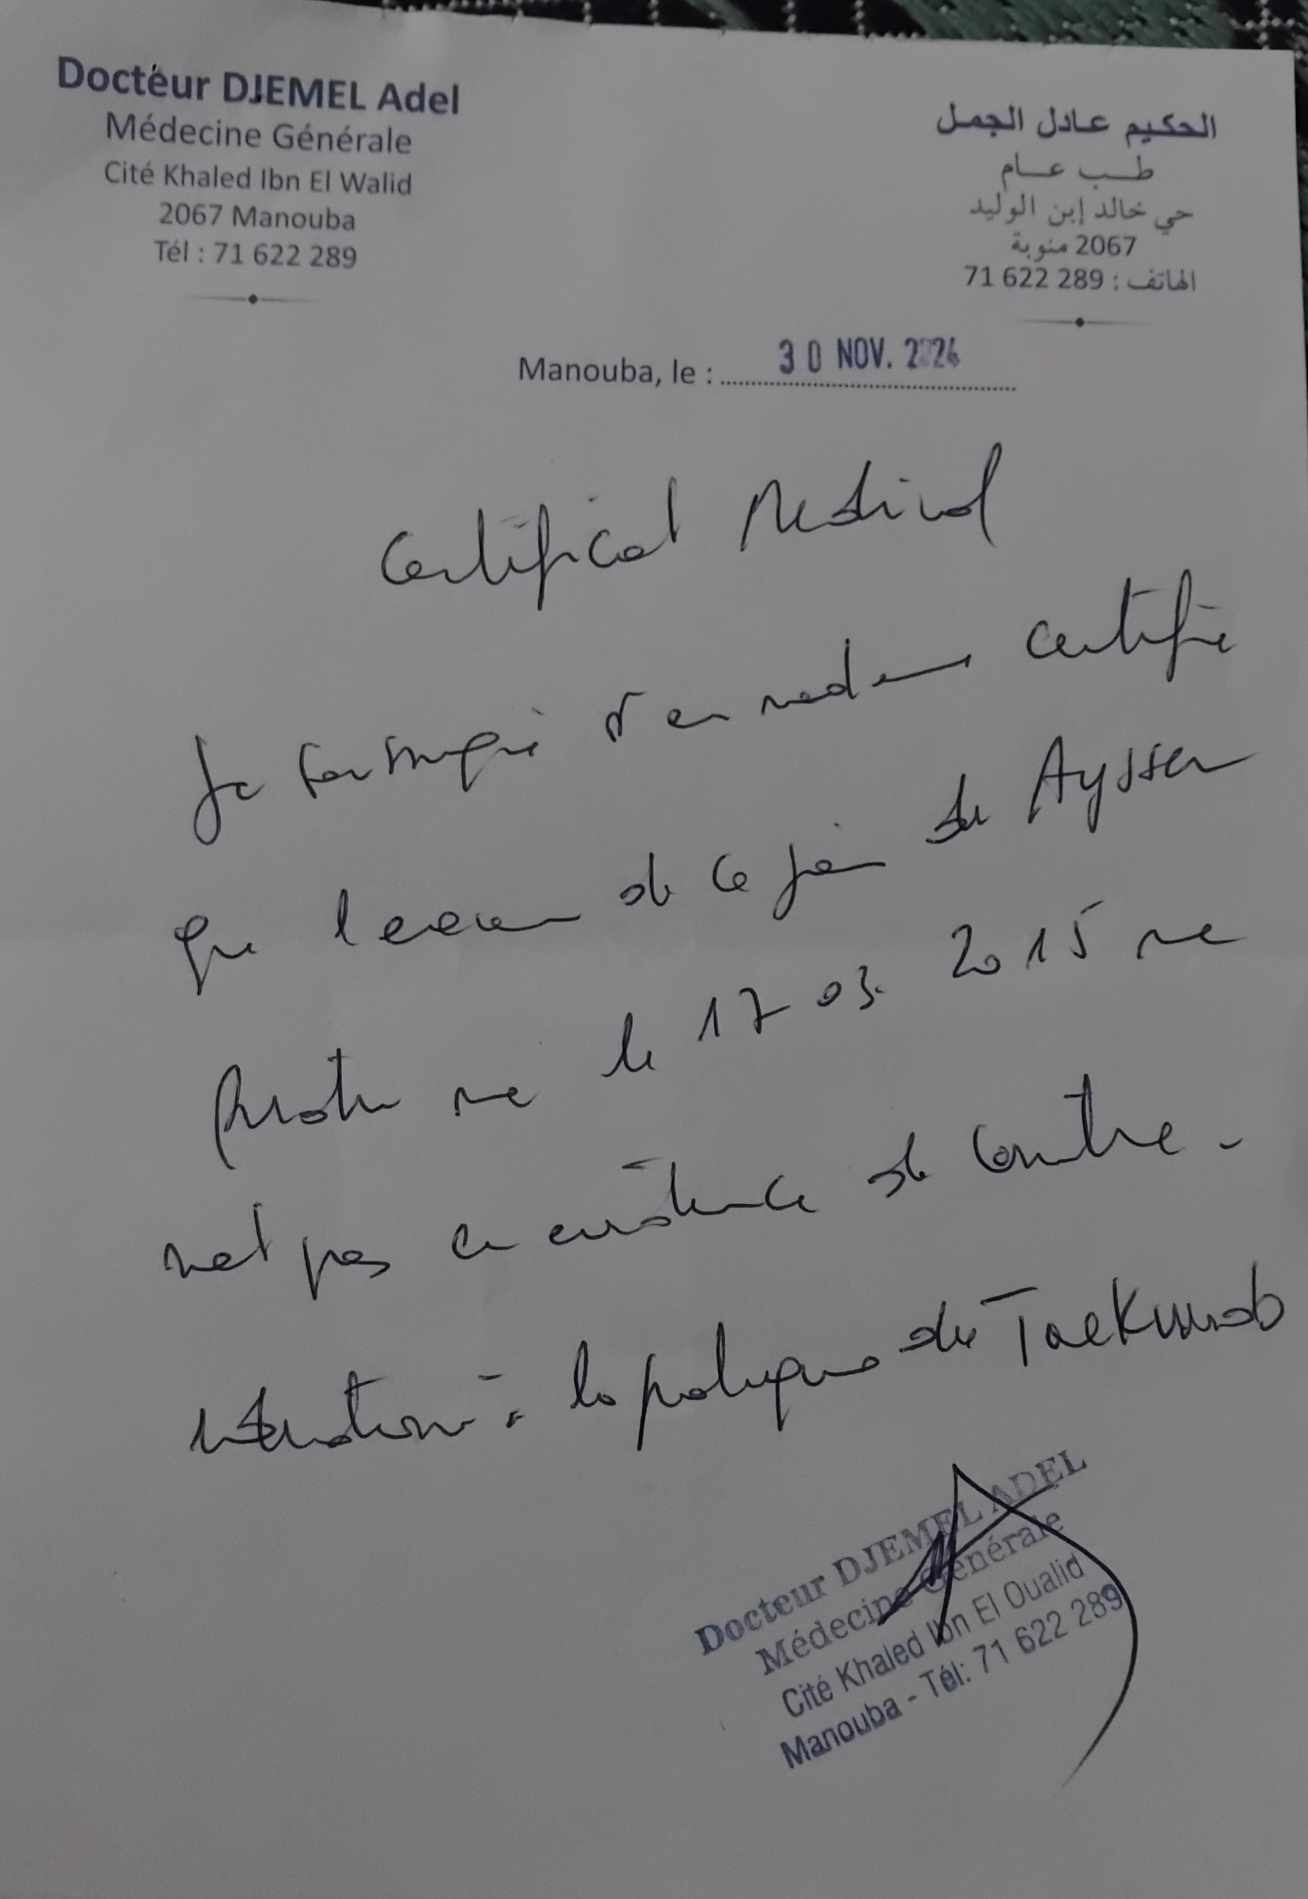 Docteur DJEMEL Adel
Médecine Générale
Cité Khaled Ibn El Walid
2067 Manouba
Tél : 71 622 289
الحكيم عادل الجمل
طب عام
حي خالد إبن الوليد
2067 منوبة
الهاتف : 71 622 289
Manouba, le : 30 NOV. 2024
Certificat Medical
Je certifie
que de ce jour du Ayssen
ne le 17 03. 2015 ne
met pas en existence de contre-
la pratique du Taekwondo
Docteur DJEMEL ADEL
Médecine Générale
Cité Khaled Ibn El Oualid
Manouba - Tél: 71 622 289